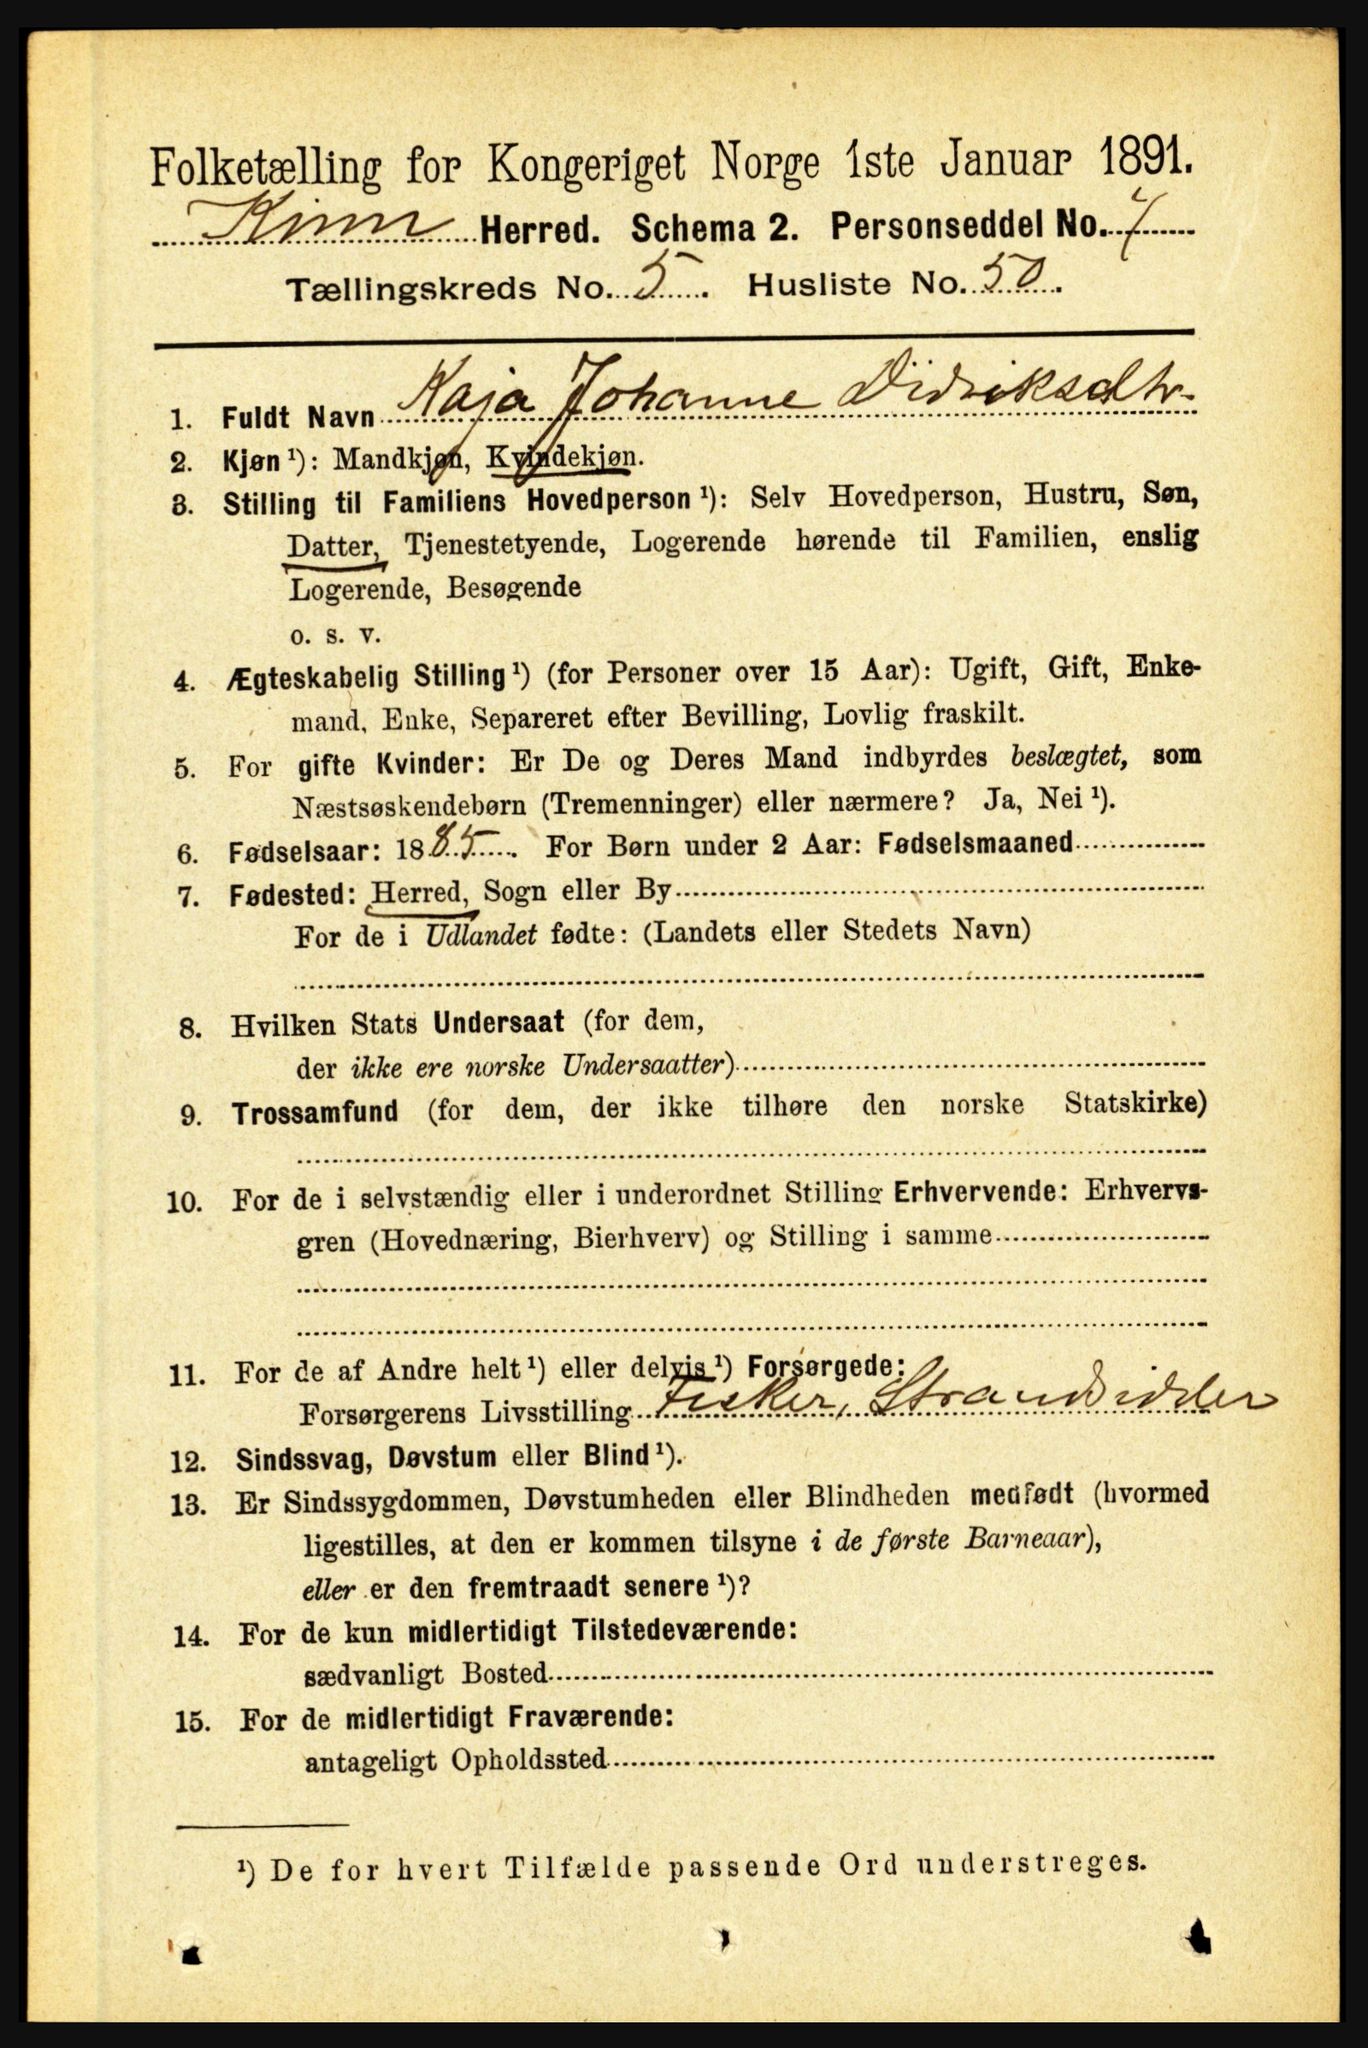 Folketælling for Kongeriget Norge 1ste Januar 1891.
Kinn Herred. Schema 2. Personseddel No. 7
Tællingskreds No. 5. Husliste No. 50.
1. Fuldt Navn Kaja Johanne Didriksdtr.
2. Kjøn ¹): Mandkjøn, Kvindekjøn.
3. Stilling til Familiens Hovedperson ¹): Selv Hovedperson, Hustru, Søn,
Datter, Tjenestetyende, Logerende hørende til Familien, enslig
Logerende, Besøgende
o. s. v.
4. Ægteskabelig Stilling ¹) (for Personer over 15 Aar): Ugift, Gift, Enke-
mand, Enke, Separeret efter Bevilling, Lovlig fraskilt.
5. For gifte Kvinder: Er De og Deres Mand indbyrdes beslægtet, som
Næstsøskendebørn (Tremenninger) eller nærmere? Ja, Nei ¹).
6. Fødselsaar: 1885. For Børn under 2 Aar: Fødselsmaaned
7. Fødested: Herred, Sogn eller By
For de i Udlandet fødte: (Landets eller Stedets Navn)
8. Hvilken Stats Undersaat (for dem,
der ikke ere norske Undersaatter)
9. Trossamfund (for dem, der ikke tilhøre den norske Statskirke)
10. For de i selvstændig eller i underordnet Stilling Erhvervende: Erhvervs-
gren (Hovednæring, Bierhverv) og Stilling i samme
11. For de af Andre helt ¹) eller delvis ¹) Forsørgede:
Forsørgerens Livsstilling Fisker, Strandsidder
12. Sindssvag, Døvstum eller Blind ¹).
13. Er Sindssygdommen, Døvstumheden eller Blindheden medfødt (hvormed
ligestilles, at den er kommen tilsyne i de første Barneaar),
eller er den fremtraadt senere ¹)?
14. For de kun midlertidigt Tilstedeværende:
sædvanligt Bosted
15. For de midlertidigt Fraværende:
antageligt Opholdssted
¹) De for hvert Tilfælde passende Ord understreges.